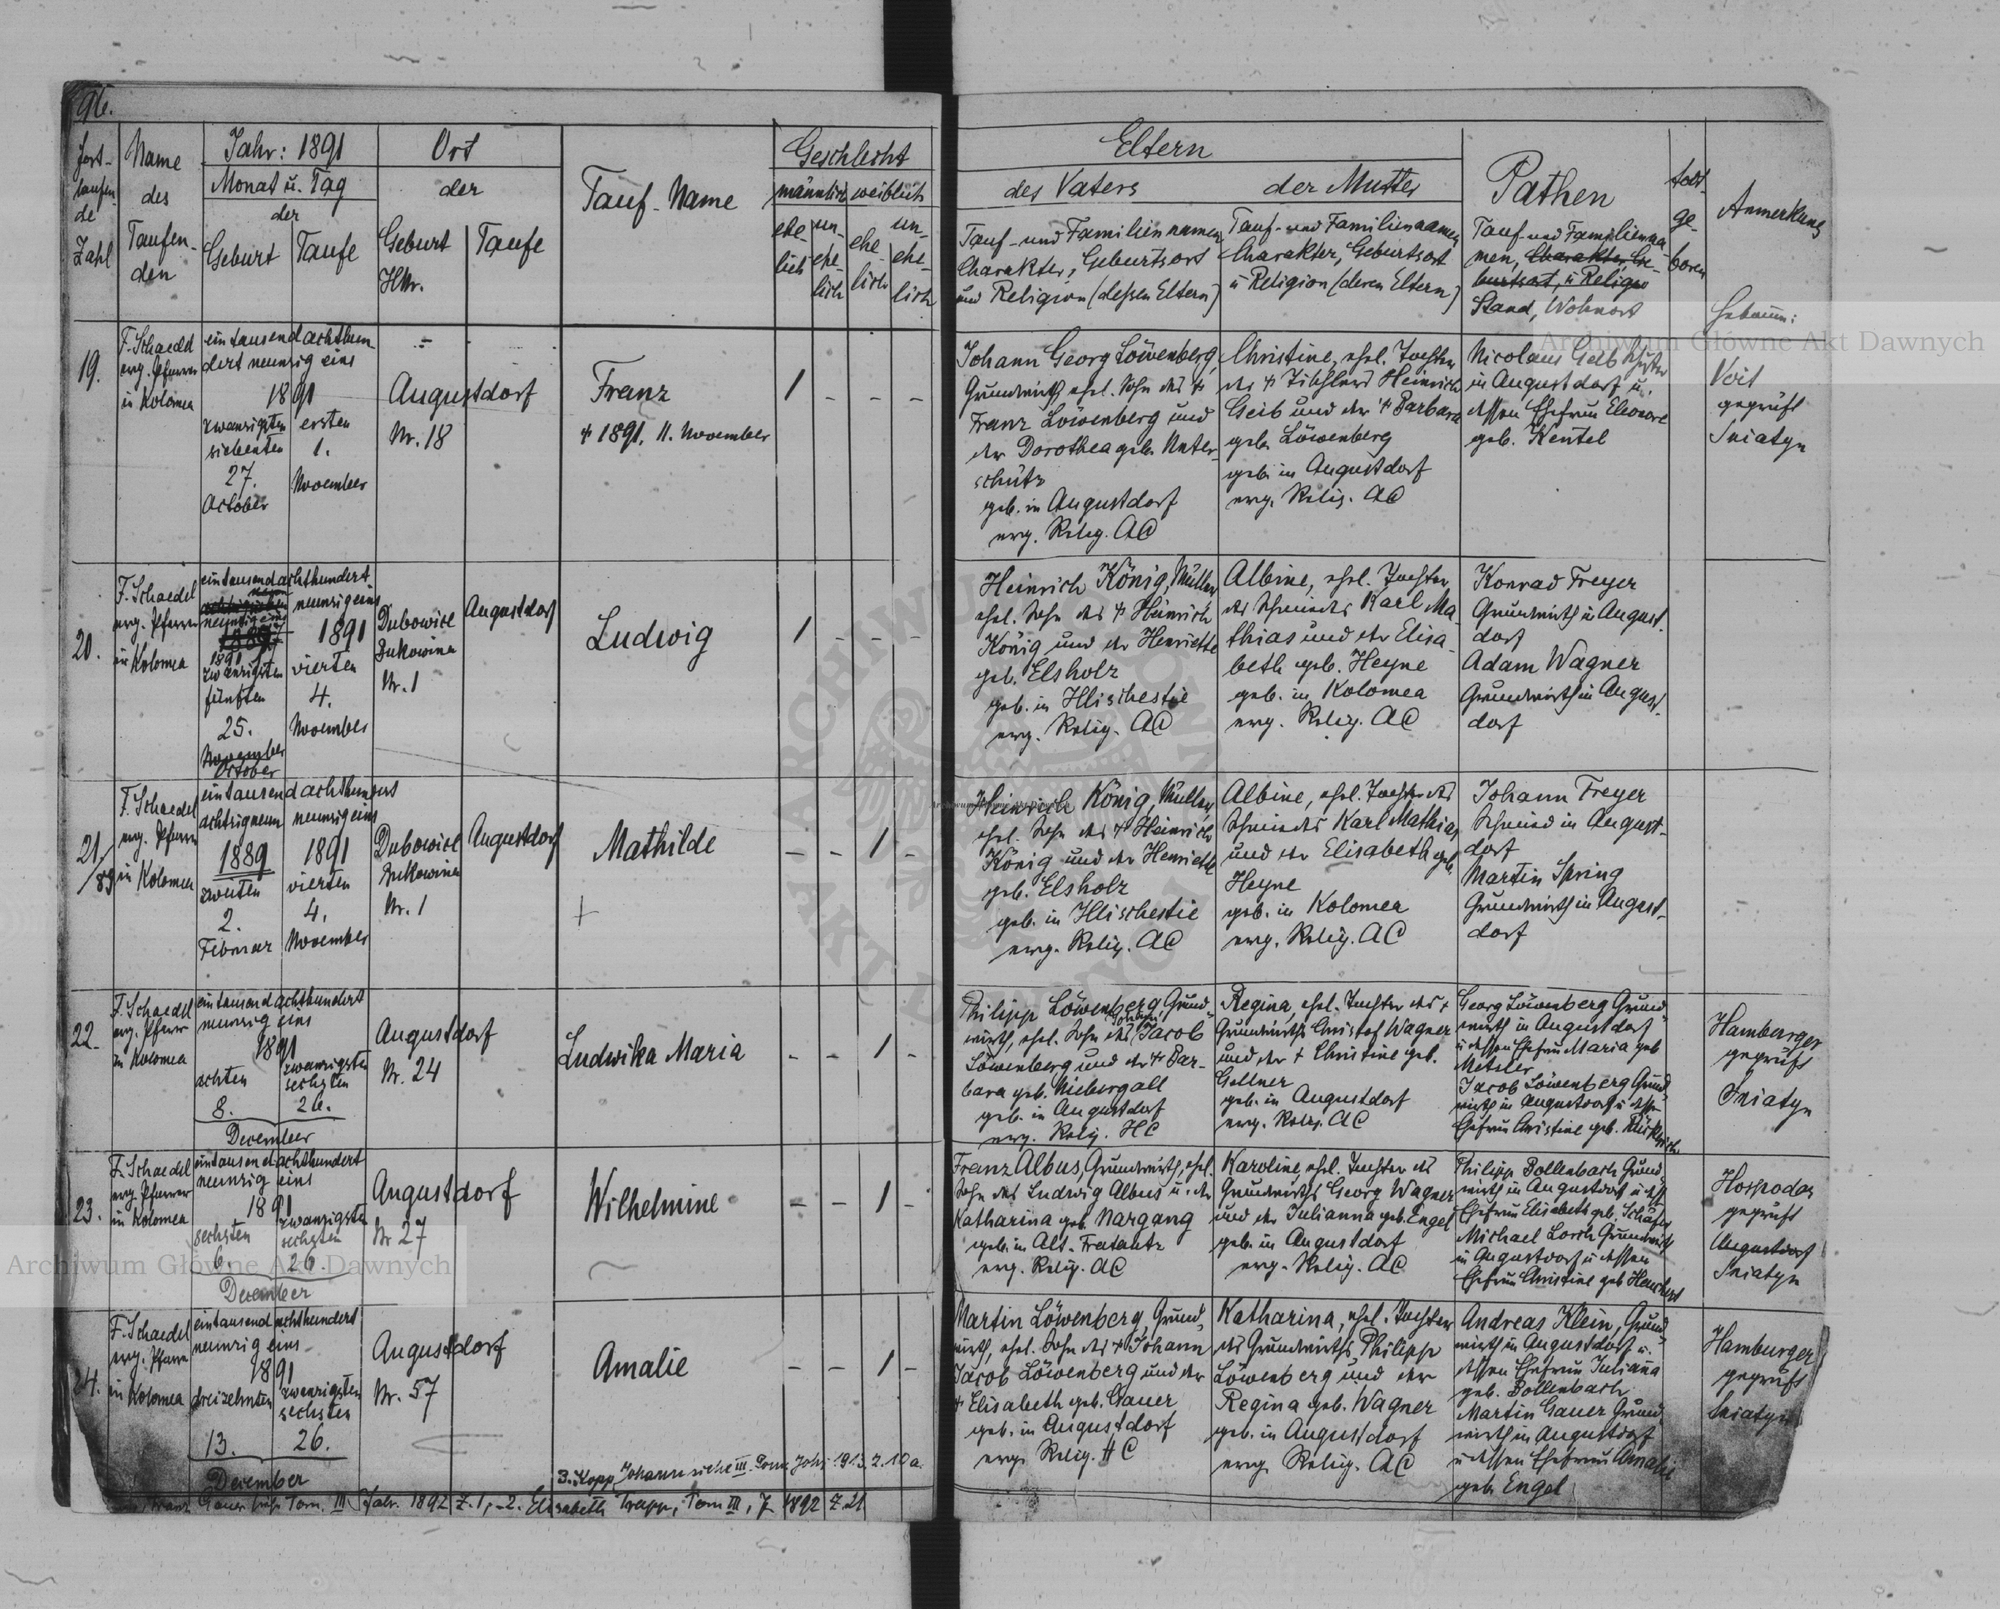 96.
Fort-
laufen-
de
Zahl
Name
des
Taufen-
den
Jahr: 1891
Monat u. Tag
der
Geburt
Taufe
Ort
der
Geburt
HNr.
Taufe
Tauf-Name
Geschlecht
männlich
weiblich
ehe-
lich
un-
ehe-
lich
ehe-
lich
un-
ehe-
lich
Eltern
des Vaters
der Mutter
Tauf- und Familiennamen
Charakter, Geburtsort
und Religion (dessen Eltern)
Tauf- und Familiennamen
Charakter, Geburtsort
u Religion (deren Eltern)
Pathen
Tauf- und Familienna-
men, Charakter, Ge-
burtsort, u Religio
Stand, Wohnort
todt
ge-
boren
Anmerkung
19.
F. Schaedel
evg. Pfarrer
in Kolomea
ein tausend achthun-
dert neunzig eins
1891
zwanzigsten
siebenten
27.
October
ersten
1.
November
Augustdorf
Nr. 18
Franz
† 1891, 11. November
1 - - -
Johann Georg Löwenberg,
Grundwirth ehel. Sohn des †
Franz Löwenberg und
der Dorothea geb. Unter-
schütz
geb. in Augustdorf
evg. Relig. AC
Christine, ehel. Tochter
des † Tischlers Heinrich
Geib und der † Barbara
geb. Löwenberg
geb. in Augustdorf
evg. Relig. AC
Nicolaus Geib
in Augustdorf u.
dessen Ehefrau Eleonore
geb. Kentel
Hebamm:
Voit
geprüft
Sniatyn
20.
F. Schaedel
evg. Pfarrer
in Kolomea
ein tausend achthundert
neunzig eins
1891
zwanzigsten
fünften
25.
November
October
neunzig eins
1891
vierten
4.
November
Dubowice
Bukowina
Nr. 1
Augustdorf
Ludwig
1 - - -
Heinrich König, Müller
ehel. Sohn des † Heinrich
König und der Henriette
geb. Elsholz
geb. in Hlischestie
evg. Relig. AC
Albine, ehel. Tochter
des Schmiedes Karl Ma-
thias und der Elisa-
beth geb. Heyne
geb. in Kolomea
evg. Relig. AC
Konrad Freyer
Grundwirth in August-
dorf
Adam Wagner
Grundwirth in August-
dorf
21/89
F. Schaedel
evg. Pfarrer
in Kolomea
ein tausend achthundert
achtzig neun
1889
zweiten
2.
Februar
neunzig eins
1891
vierten
4.
November
Dubowice
Bukowina
Nr. 1
Augustdorf
Mathilde
+
- - 1 -
Heinrich König, Müller,
ehel. Sohn des † Heinrich
König und der Henriette
geb. Elsholz
geb. in Hlischestie
evg. Relig. AC
Albine, ehel. Tochter des
Schmiedes Karl Mathias
und der Elisabeth geb.
Heyne
geb. in Kolomea
evg. Relig. AC
Johann Freyer
Schmied in August-
dorf
Martin Spring
Grundwirth in August-
dorf
22.
F. Schaedel
evg. Pfarrer
in Kolomea
ein tausend achthundert
neunzig eins
1891
achten
8.
zwanzigsten
sechsten
26.
December
Augustdorf
Nr. 24
Ludwika Maria
- - 1 -
Philipp Löwenberg, Grund-
wirth, ehel. Sohn des Johann Jacob
Löwenberg und der † Bar-
bara geb. Niebergall
geb. in Augustdorf
evg. Relig. HC
Regina, ehel. Tochter des †
Grundwirths Christof Wagner
und der † Christine geb.
Gellner
geb. in Augustdorf
evg. Relig. AC
Georg Löwenberg Grund-
wirth in Augustdorf
u dessen Ehefrau Maria geb
Metzler
Jacob Löwenberg Grund-
wirth in Augustdorf u dessen
Ehefrau Christine geb.
Hamburger
geprüft
Sniatyn
23.
F. Schaedel
evg. Pfarrer
in Kolomea
ein tausend achthundert
neunzig eins
1891
sechsten
6
zwanzigsten
sechsten
26
December
Augustdorf
Nr 27
Wilhelmine
- - 1 -
Franz Albus, Grundwirth, ehel.
Sohn des Ludwig Albus u. der
Katharina geb. Nargang
geb. in Alt-Fratautz
evg. Relig. AC
Karoline, ehel. Tochter des
Grundwirths Georg Wagner
und der Julianna geb. Engel
geb. in Augustdorf
evg. Relig. AC
Philipp Bollenbach Grund-
wirth in Augustdorf u dess
Ehefrau Elisabeth geb. Schäfer
Michael Lorch Grundwirth
in Augustdorf u dessen
Ehefrau Christine geb
Hospodar
geprüft
Augustdorf
Sniatyn
24.
F. Schaedel
evg. Pfarrer
in Kolomea
ein tausend achthundert
neunzig eins
1891
dreizehnten
13.
zwanzigsten
sechsten
26.
December
Augustdorf
Nr. 57
Amalie
- - 1 -
Martin Löwenberg, Grund-
wirth, ehel. Sohn des † Johann
Jacob Löwenberg und der
† Elisabeth geb. Gauer
geb. in Augustdorf
evg. Relig. HC
Katharina, ehel. Tochter
des Grundwirths Philipp
Löwenberg und der
Regina geb. Wagner
geb. in Augustdorf
evg. Relig. AC
Andreas Klein, Grund-
wirth in Augustdorf u.
dessen Ehefrau Juliana
geb. Bollenbach
Martin Gauer Grund-
wirth in Augustdorf
u dessen Ehefrau Amalie
geb. Engel
Hamburger
geprüft
Sniatyn
3. Kopp Johann siehe III. Tom. Jahr 1913. Z. 10a.
Franz Gauer siehe Tom. III Jahr. 1892 Z. 1, - 2. Elisabeth Trapp, Tom III, J. 1892 Z. 21
Archiwum Główne Akt Dawnych
Archiwum Główne Akt Dawnych